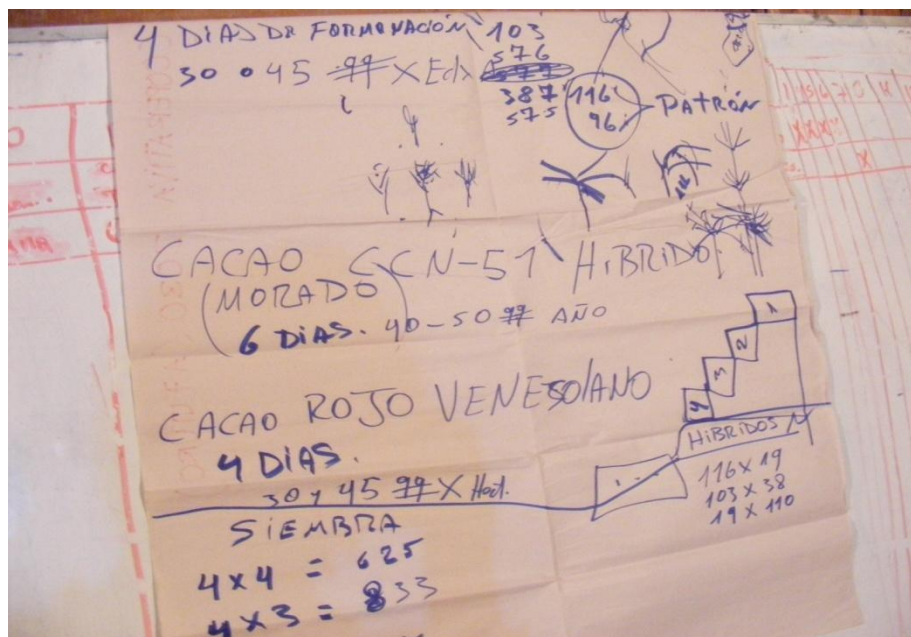 4 DIAS DE FORMONACIÓN
30 o 45 qq X
103
576
387
575
116
96
PATRÓN
CACAO CCN-51 HiBRiDO
(MORADO)
6 DiAS. 40-50 qq AÑO
CACAO ROJO VENESOlANO
4 DiAS.
30 y 45 qq X Hect.
1
2
3
4
HiBRiDOS
116 X 19
103 X 38
19 X 110
SiEMBRA
4 X 4 = 625
4 X 3 = 833